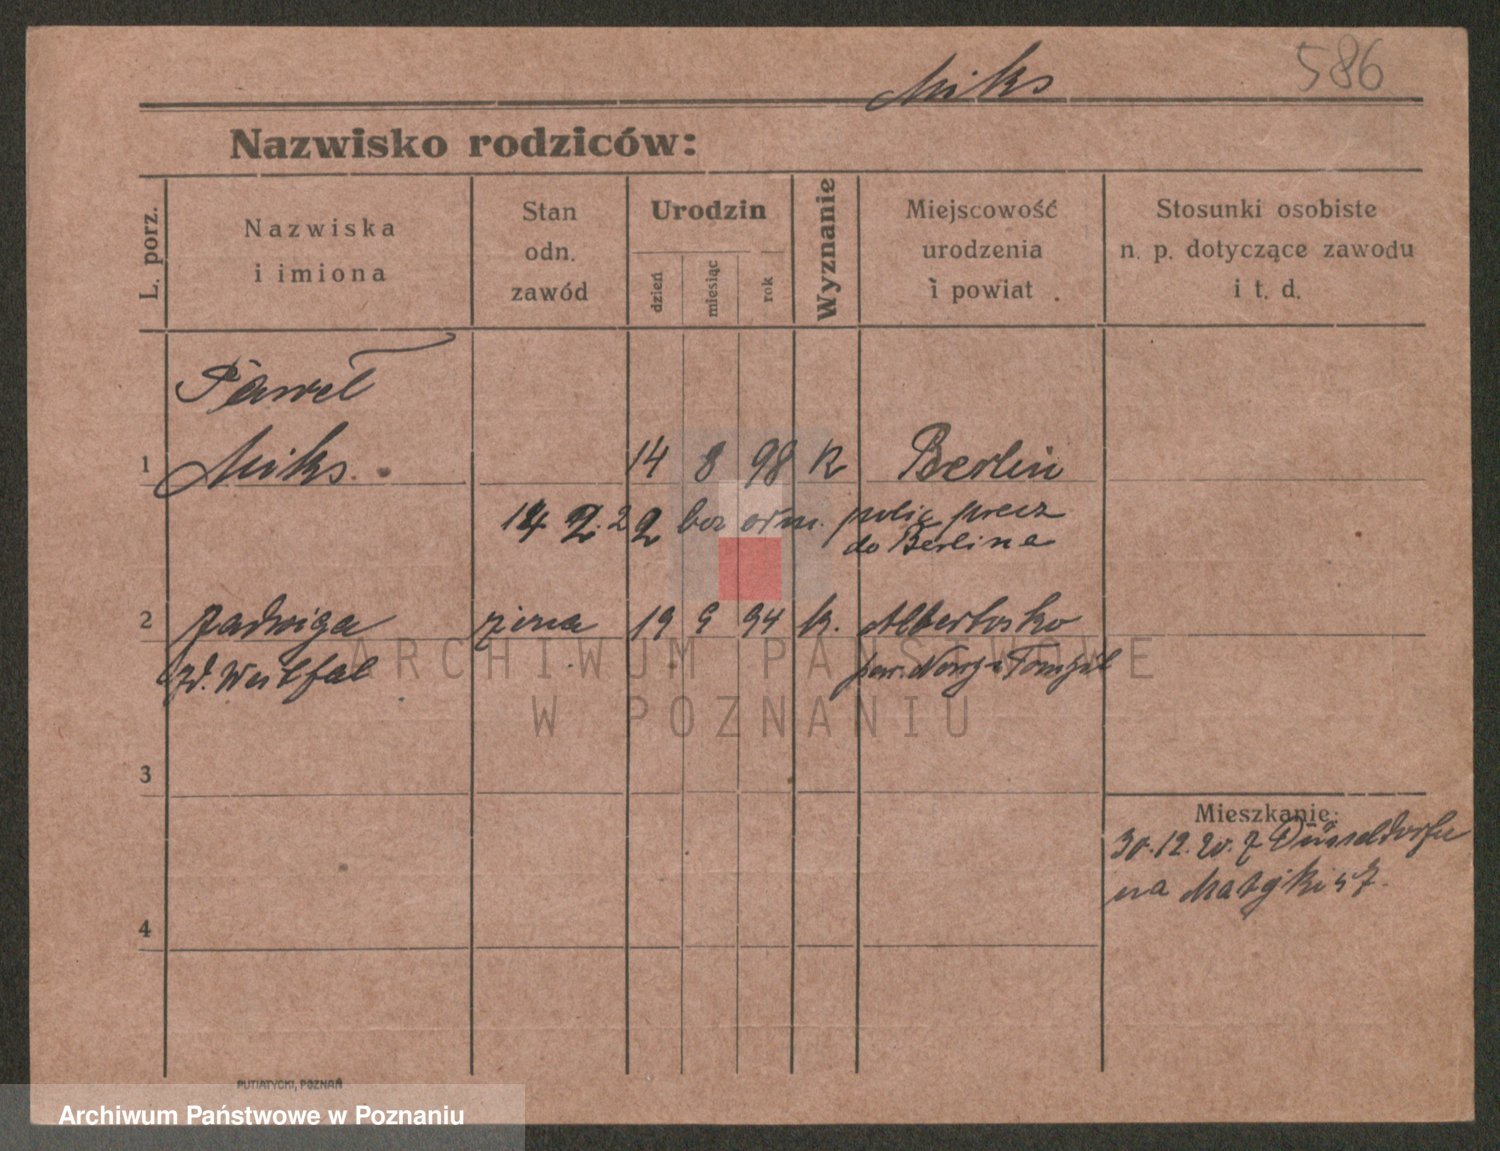 Miks
586
Nazwisko rodziców:
L. porz.
Nazwiska
i imiona
Stan
odn.
zawód
Urodzin
dzień
miesiąc
rok
Wyznanie
Miejscowość
urodzenia
i powiat
Stosunki osobiste
n. p. dotyczące zawodu
i t. d.
Paweł
1 Miks. 14 8 98 K Berlin
14 2. 22 bez odm. polic precz
do Berlina
2 Jadwiga żona 19 9 94 k. Albertosko
zd. Westfal pow. Nowy-Tomyśl
ARCHIWUM PAŃSTWOWE
W POZNANIU
3
Mieszkanie:
30.12.20. z Düsseldorfu
na Matejki 57.
4
PUTIATYCKI, POZNAŃ
Archiwum Państwowe w Poznaniu